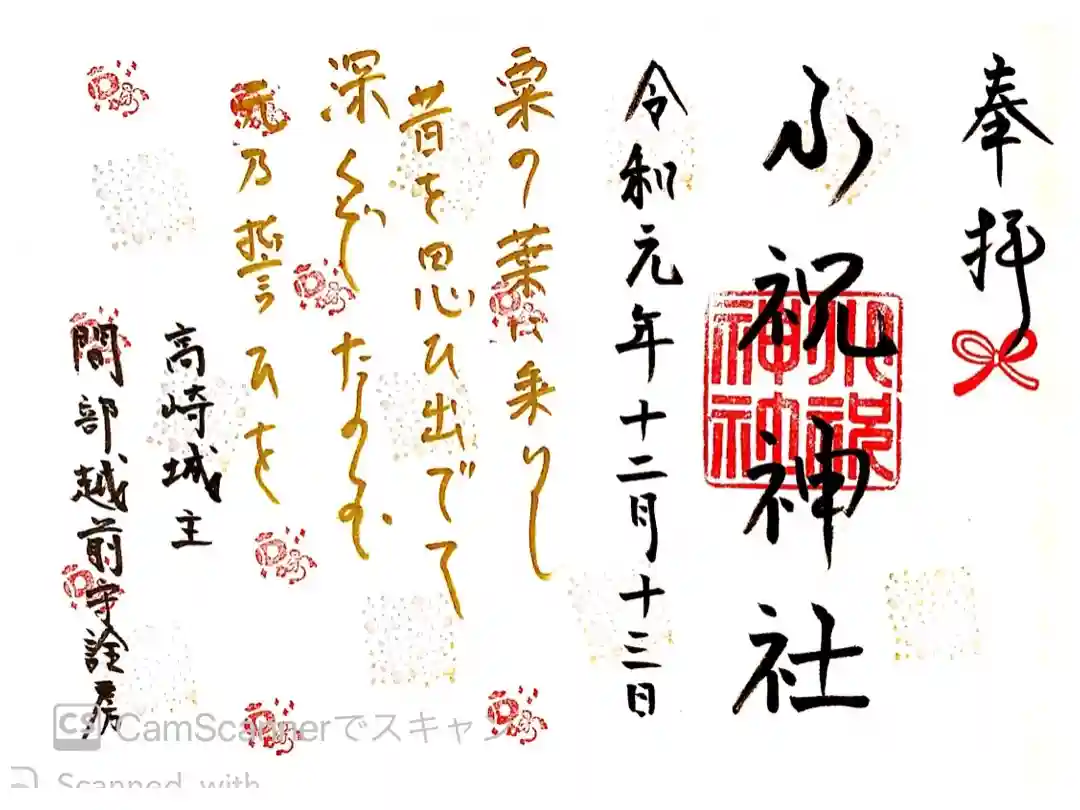 奉拝
小祝神社
小祝
神社
令和元年十二月十三日
粟の葉に乗りし
昔を思ひ出でて
深くぞたのむ
元乃誓ひを
高崎城主
間部越前守詮房
CS CamScannerでスキャン
Scanned with